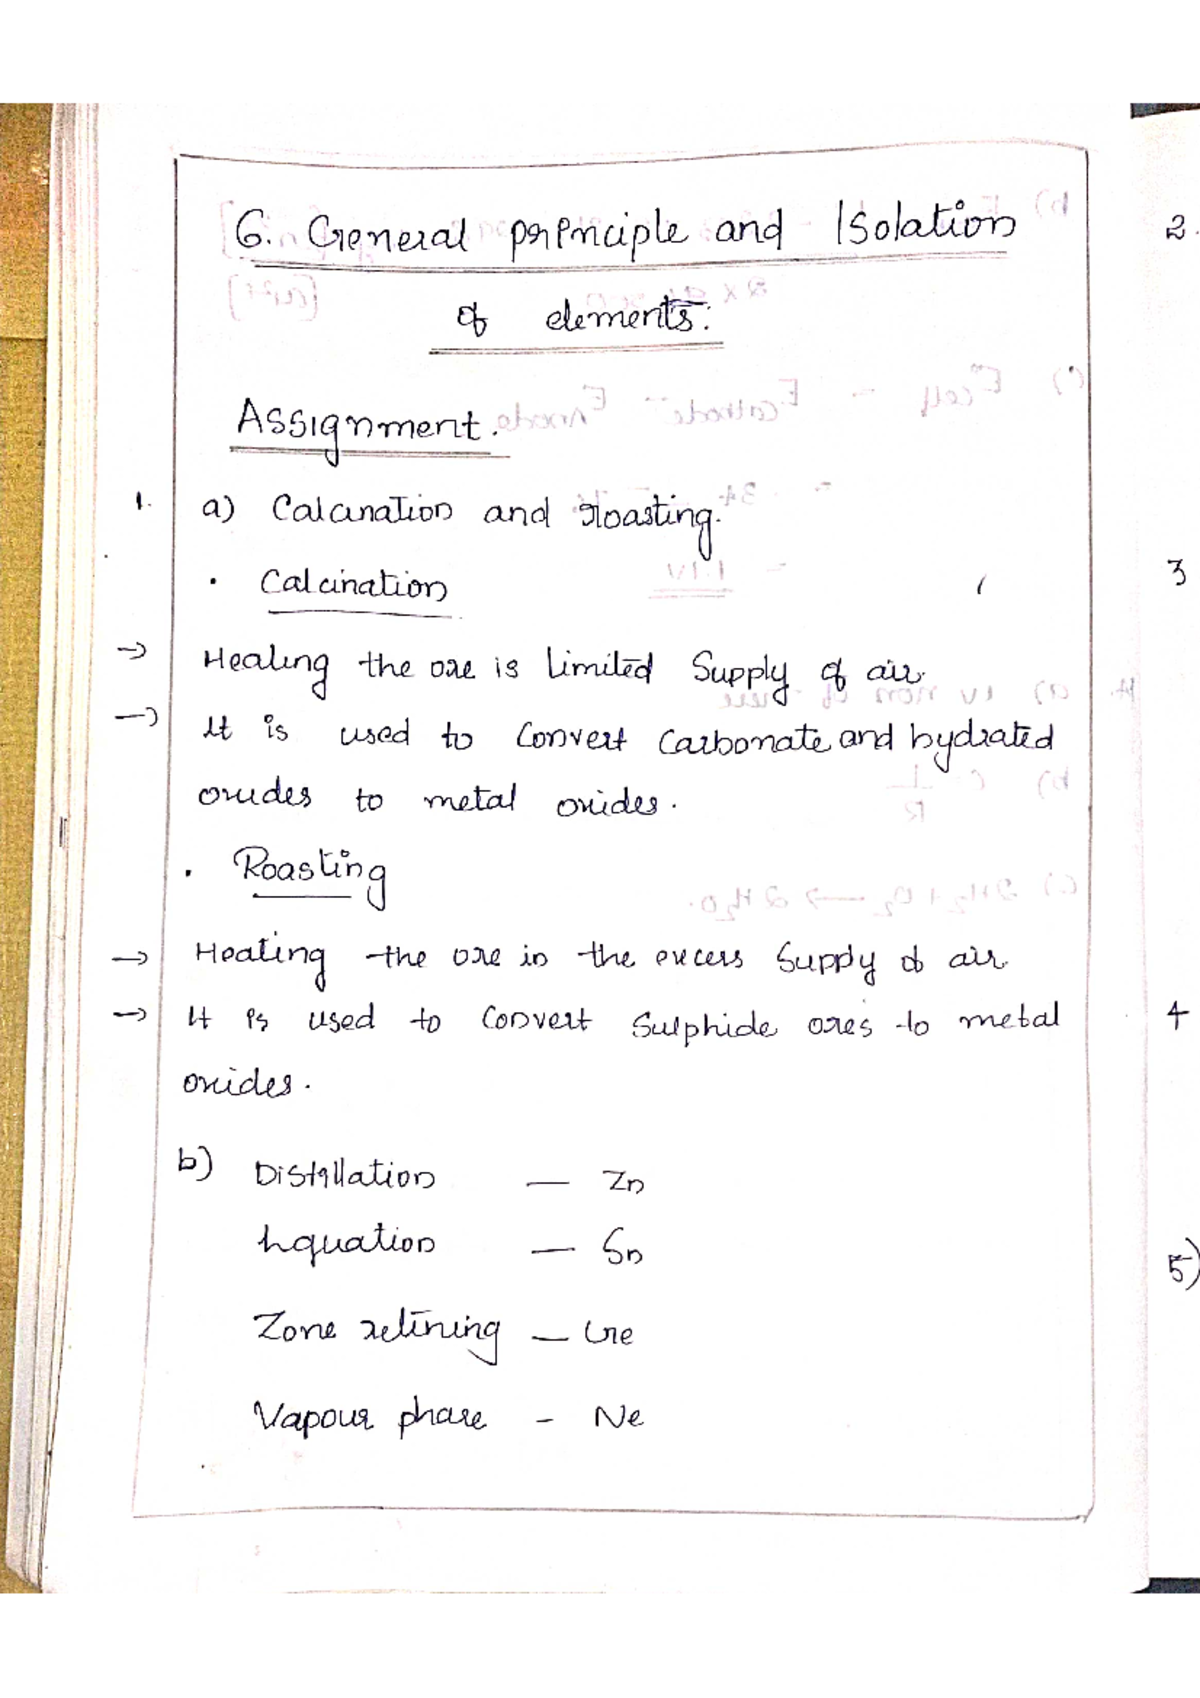 6. General principle and Isolation
of elements:
Assignment.
1. a) Calcination and Roasting.
• Calcination
→ Heating the ore is limited Supply of air.
→ It is used to Convert Carbonate and hydrated
oxides to metal oxides.
• Roasting
→ Heating the ore in the excess Supply of air.
→ It is used to Convert Sulphide ores to metal
oxides.
b) Distillation — Zn
Liquation — Sn
Zone refining — Ge
Vapour phase - Ne
2.
3
4
5)